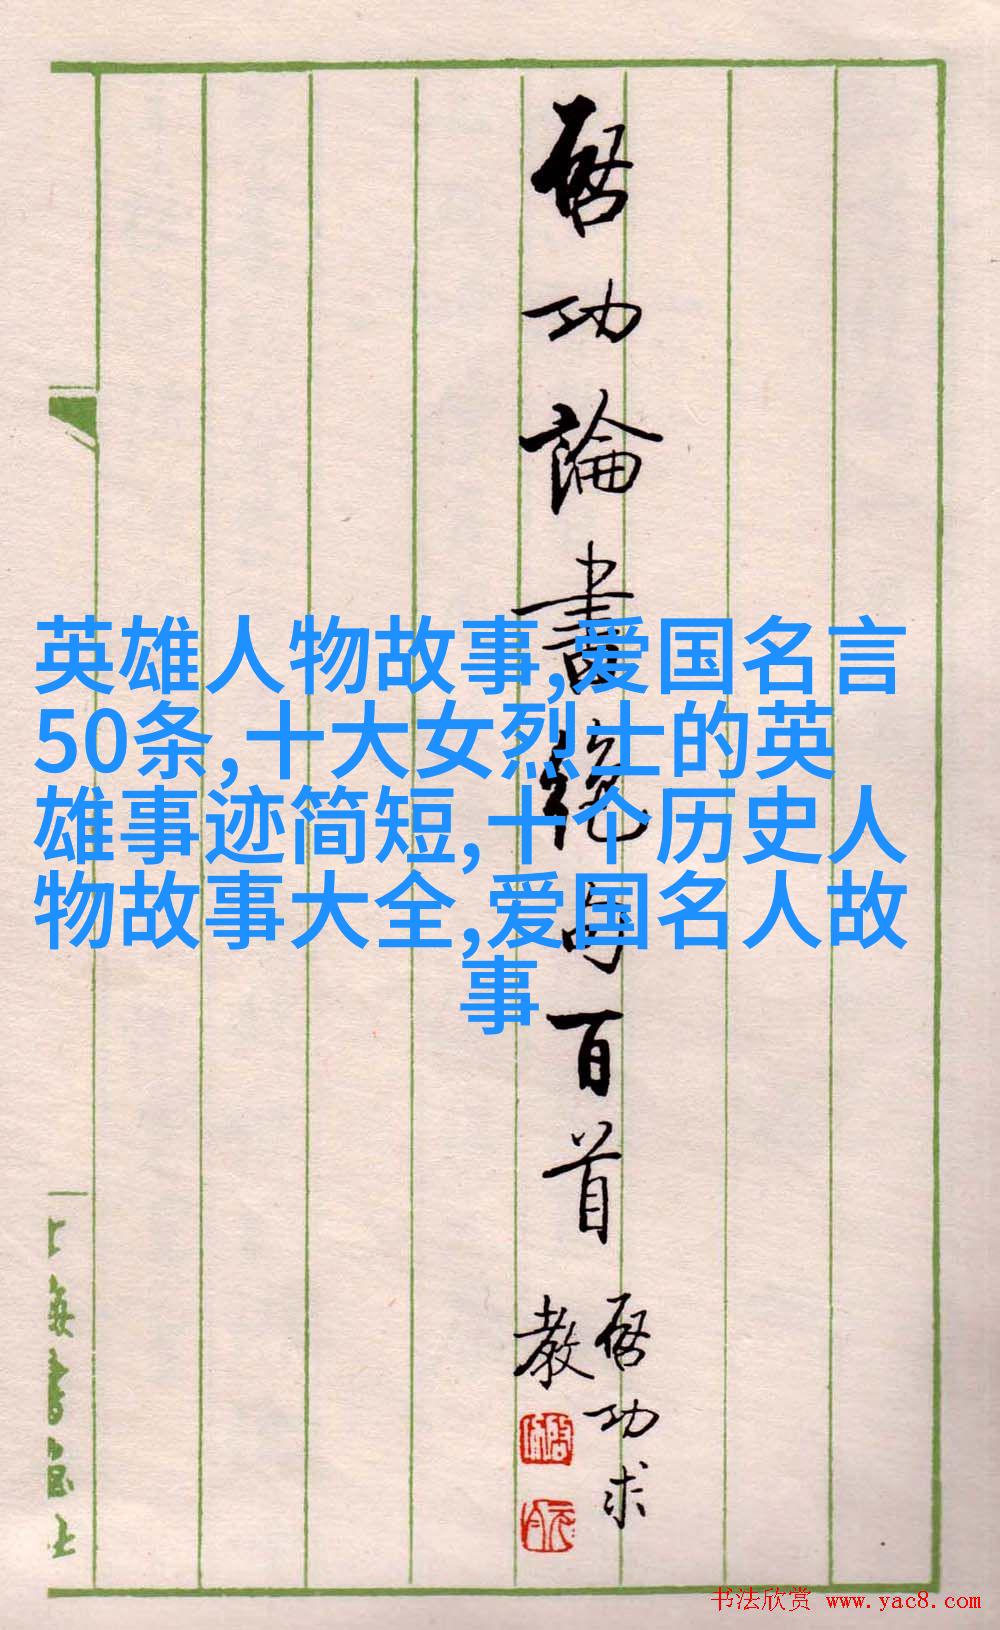 啓功論書絕句百首
啓功求
教
英雄人物故事,爱国名言
50条,十大女烈士的英
雄事迹简短,十个历史人
物故事大全,爱国名人故
事
上海書畫社
书法欣赏 www.yac8.com